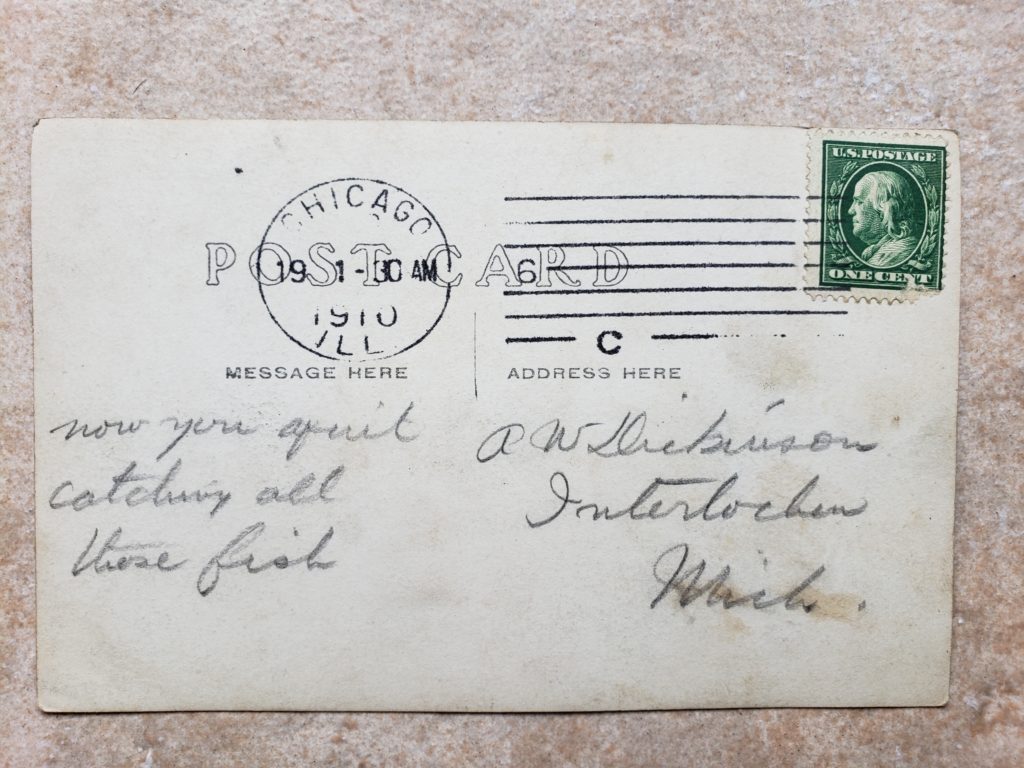 U.S. POSTAGE
ONE CENT
CHICAGO
19 1-30 AM
1910
ILL.
6
C
POST CARD
MESSAGE HERE
ADDRESS HERE
now you quit
catching all
those fish
A W Dickinson
Interlochen
Mich.